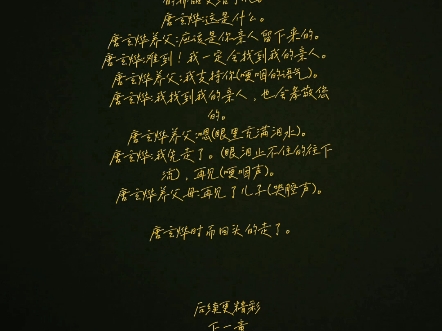 唐玄烨:这是什么。
唐玄烨养父:应该是你亲人留下来的。
唐玄烨:难到！我一定会找到我的亲人。
唐玄烨养父:我支持你(哽咽的语气)。
唐玄烨:我找到我的亲人，也会孝敬您
的。
唐玄烨养父:嗯(眼里充满泪水)。
唐玄烨:我先走了。(眼泪止不住的往下
流)，再见(哽咽声)。
唐玄烨养父母:再见了儿子(哭腔声)。
唐玄烨时而回头的走了。
后续更精彩
下一章